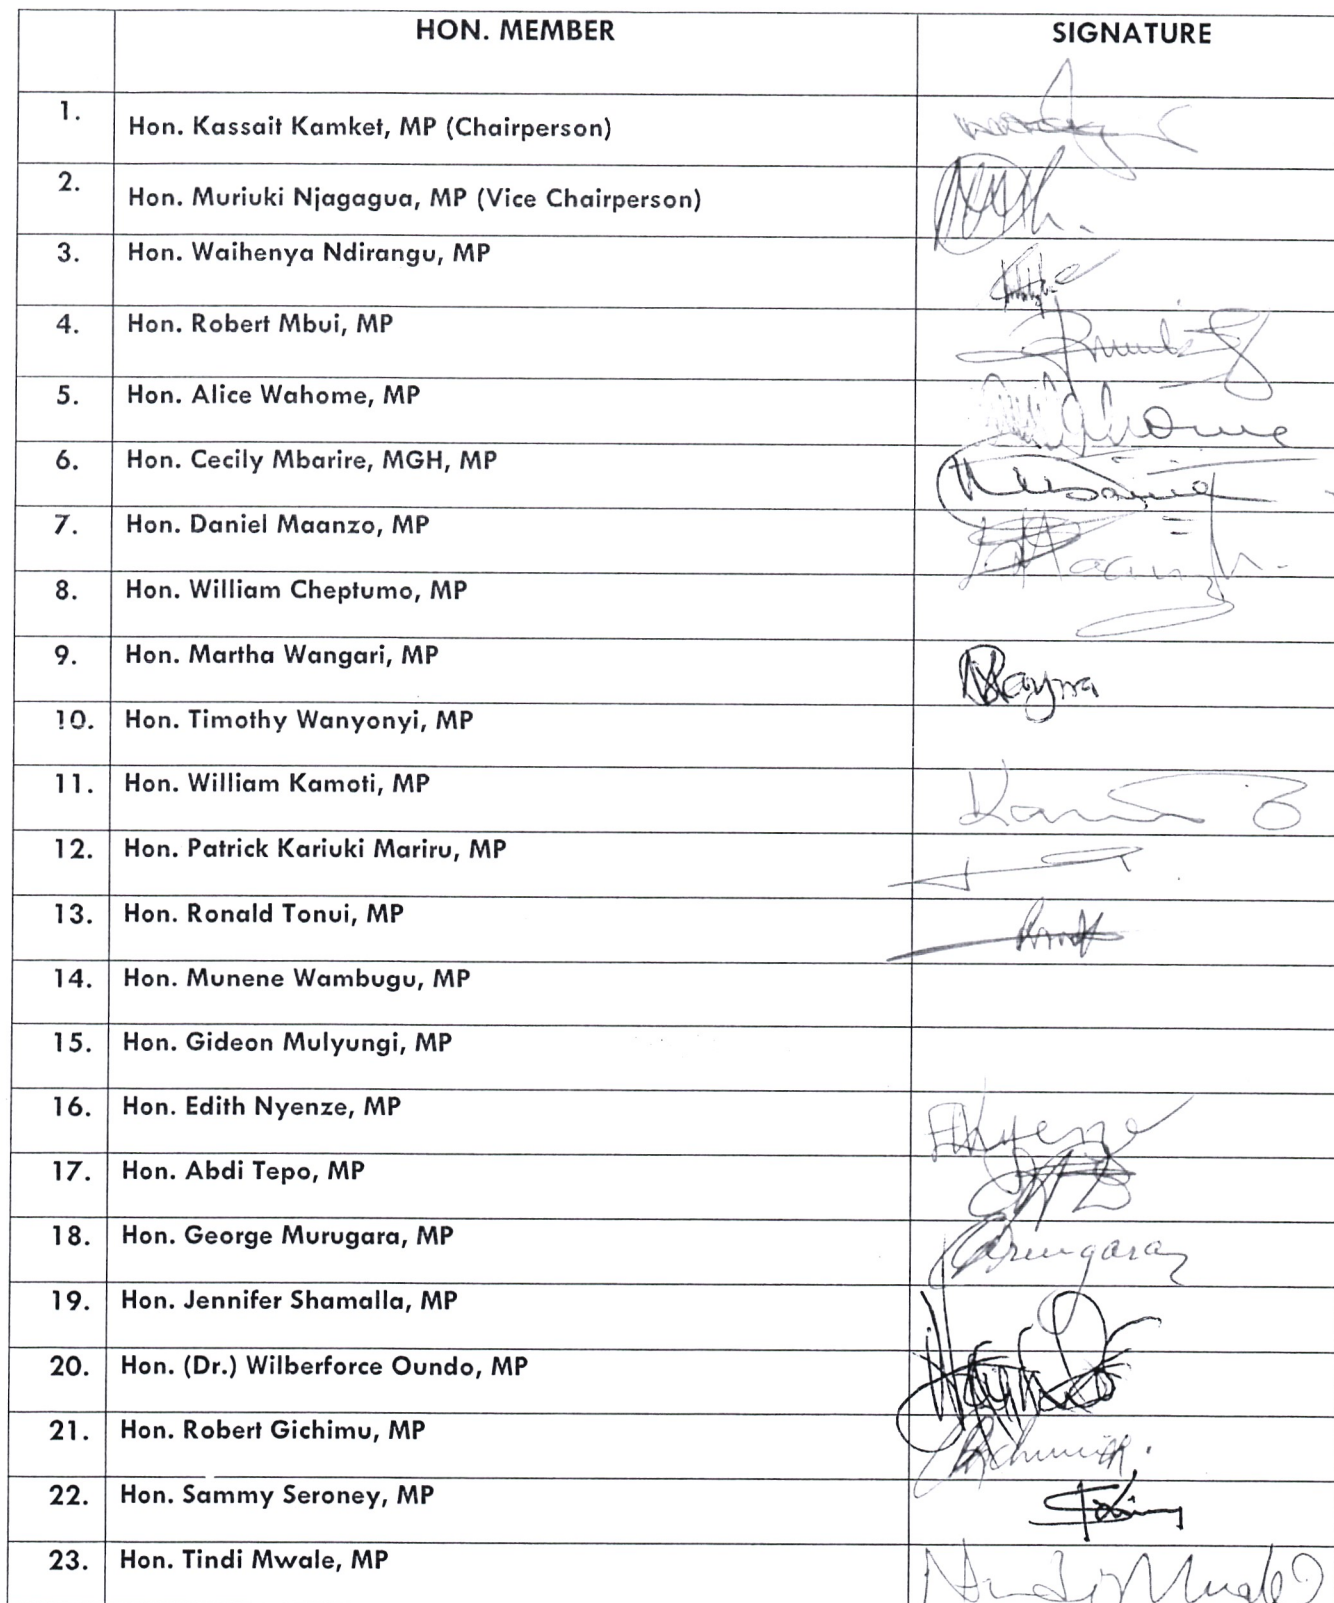 HON. MEMBER SIGNATURE
1. Hon. Kassait Kamket, MP (Chairperson)
2. Hon. Muriuki Njagagua, MP (Vice Chairperson)
3. Hon. Waihenya Ndirangu, MP
4. Hon. Robert Mbui, MP
5. Hon. Alice Wahome, MP
6. Hon. Cecily Mbarire, MGH, MP
7. Hon. Daniel Maanzo, MP
8. Hon. William Cheptumo, MP
9. Hon. Martha Wangari, MP
10. Hon. Timothy Wanyonyi, MP
11. Hon. William Kamoti, MP
12. Hon. Patrick Kariuki Mariru, MP
13. Hon. Ronald Tonui, MP
14. Hon. Munene Wambugu, MP
15. Hon. Gideon Mulyungi, MP
16. Hon. Edith Nyenze, MP
17. Hon. Abdi Tepo, MP
18. Hon. George Murugara, MP
19. Hon. Jennifer Shamalla, MP
20. Hon. (Dr.) Wilberforce Oundo, MP
21. Hon. Robert Gichimu, MP
22. Hon. Sammy Seroney, MP
23. Hon. Tindi Mwale, MP